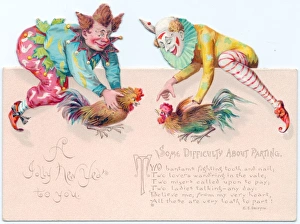 A
Jolly New Year
to you.
SOME DIFFICULTY ABOUT PARTING.
Two bantams fighting tooth and nail,
Two lovers wandering in the vale,
Two misers called upon to pay,
Two ladies talking any day,
Believe me, from my very heart,
All these are very loath to part!